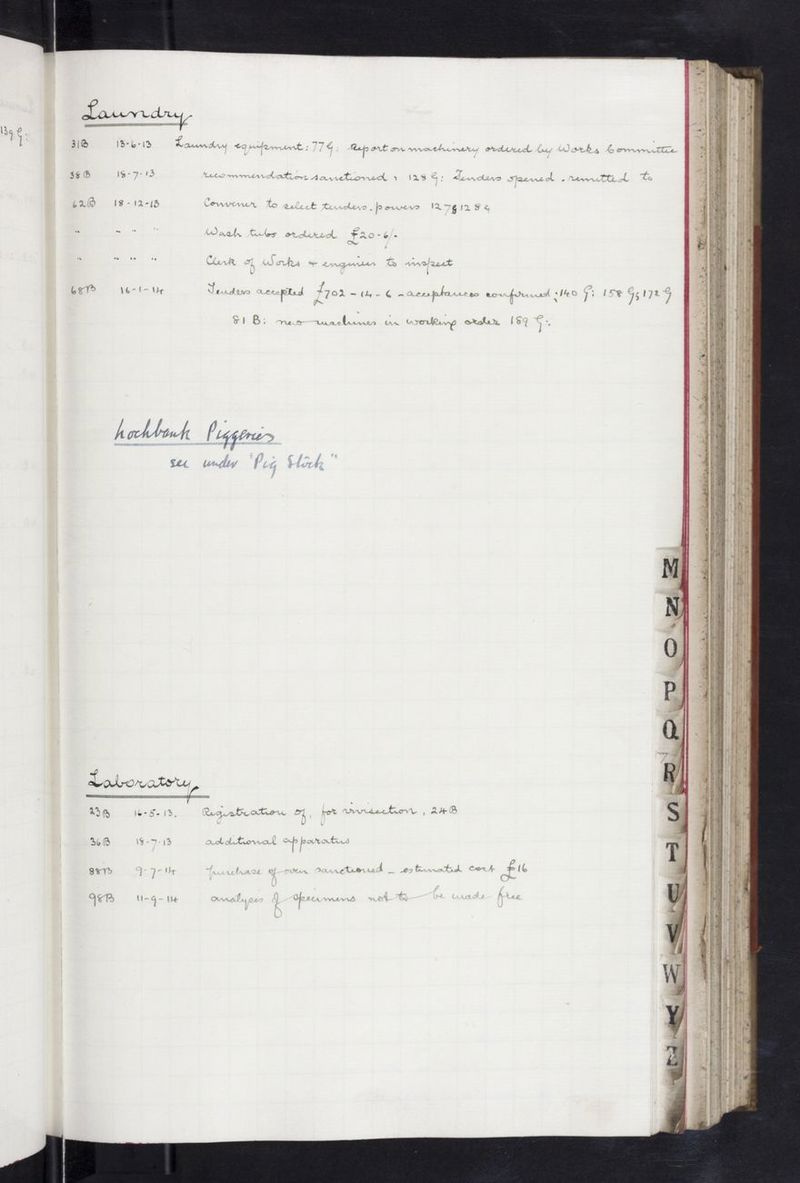 139 G:
Laundry
31B 13-6-13 Laundry equipment: 77 G: Report on machinery ordered by Works Committee
38B 18-7-13 recommendation sanctioned, 128 G: Tenders opened. remitted to
62B 18-12-13 Convener to select tenders. powers 127 G 128 G
" " " " Wash tubs ordered £20-6/-
" " " " Clerk of Works & engineer to inspect
68B 16-1-14 Tenders accepted £702-14-6 - acceptances confirmed: 140 G: 158 G; 172 G
81 B: new machines in working order 189 G:.
Lochbank Piggeries
see under "Pig Stock"
Laboratory
23B 16-5-13. Registration of, for vivisection, 24B
36B 18-7-13 additional apparatus
88B 9-7-14 purchase of oven sanctioned - estimated cost £16
98B 11-9-14 analysis of specimens not to be made free
M
N
O
P
Q
R
S
T
U
V
W
Y
Z